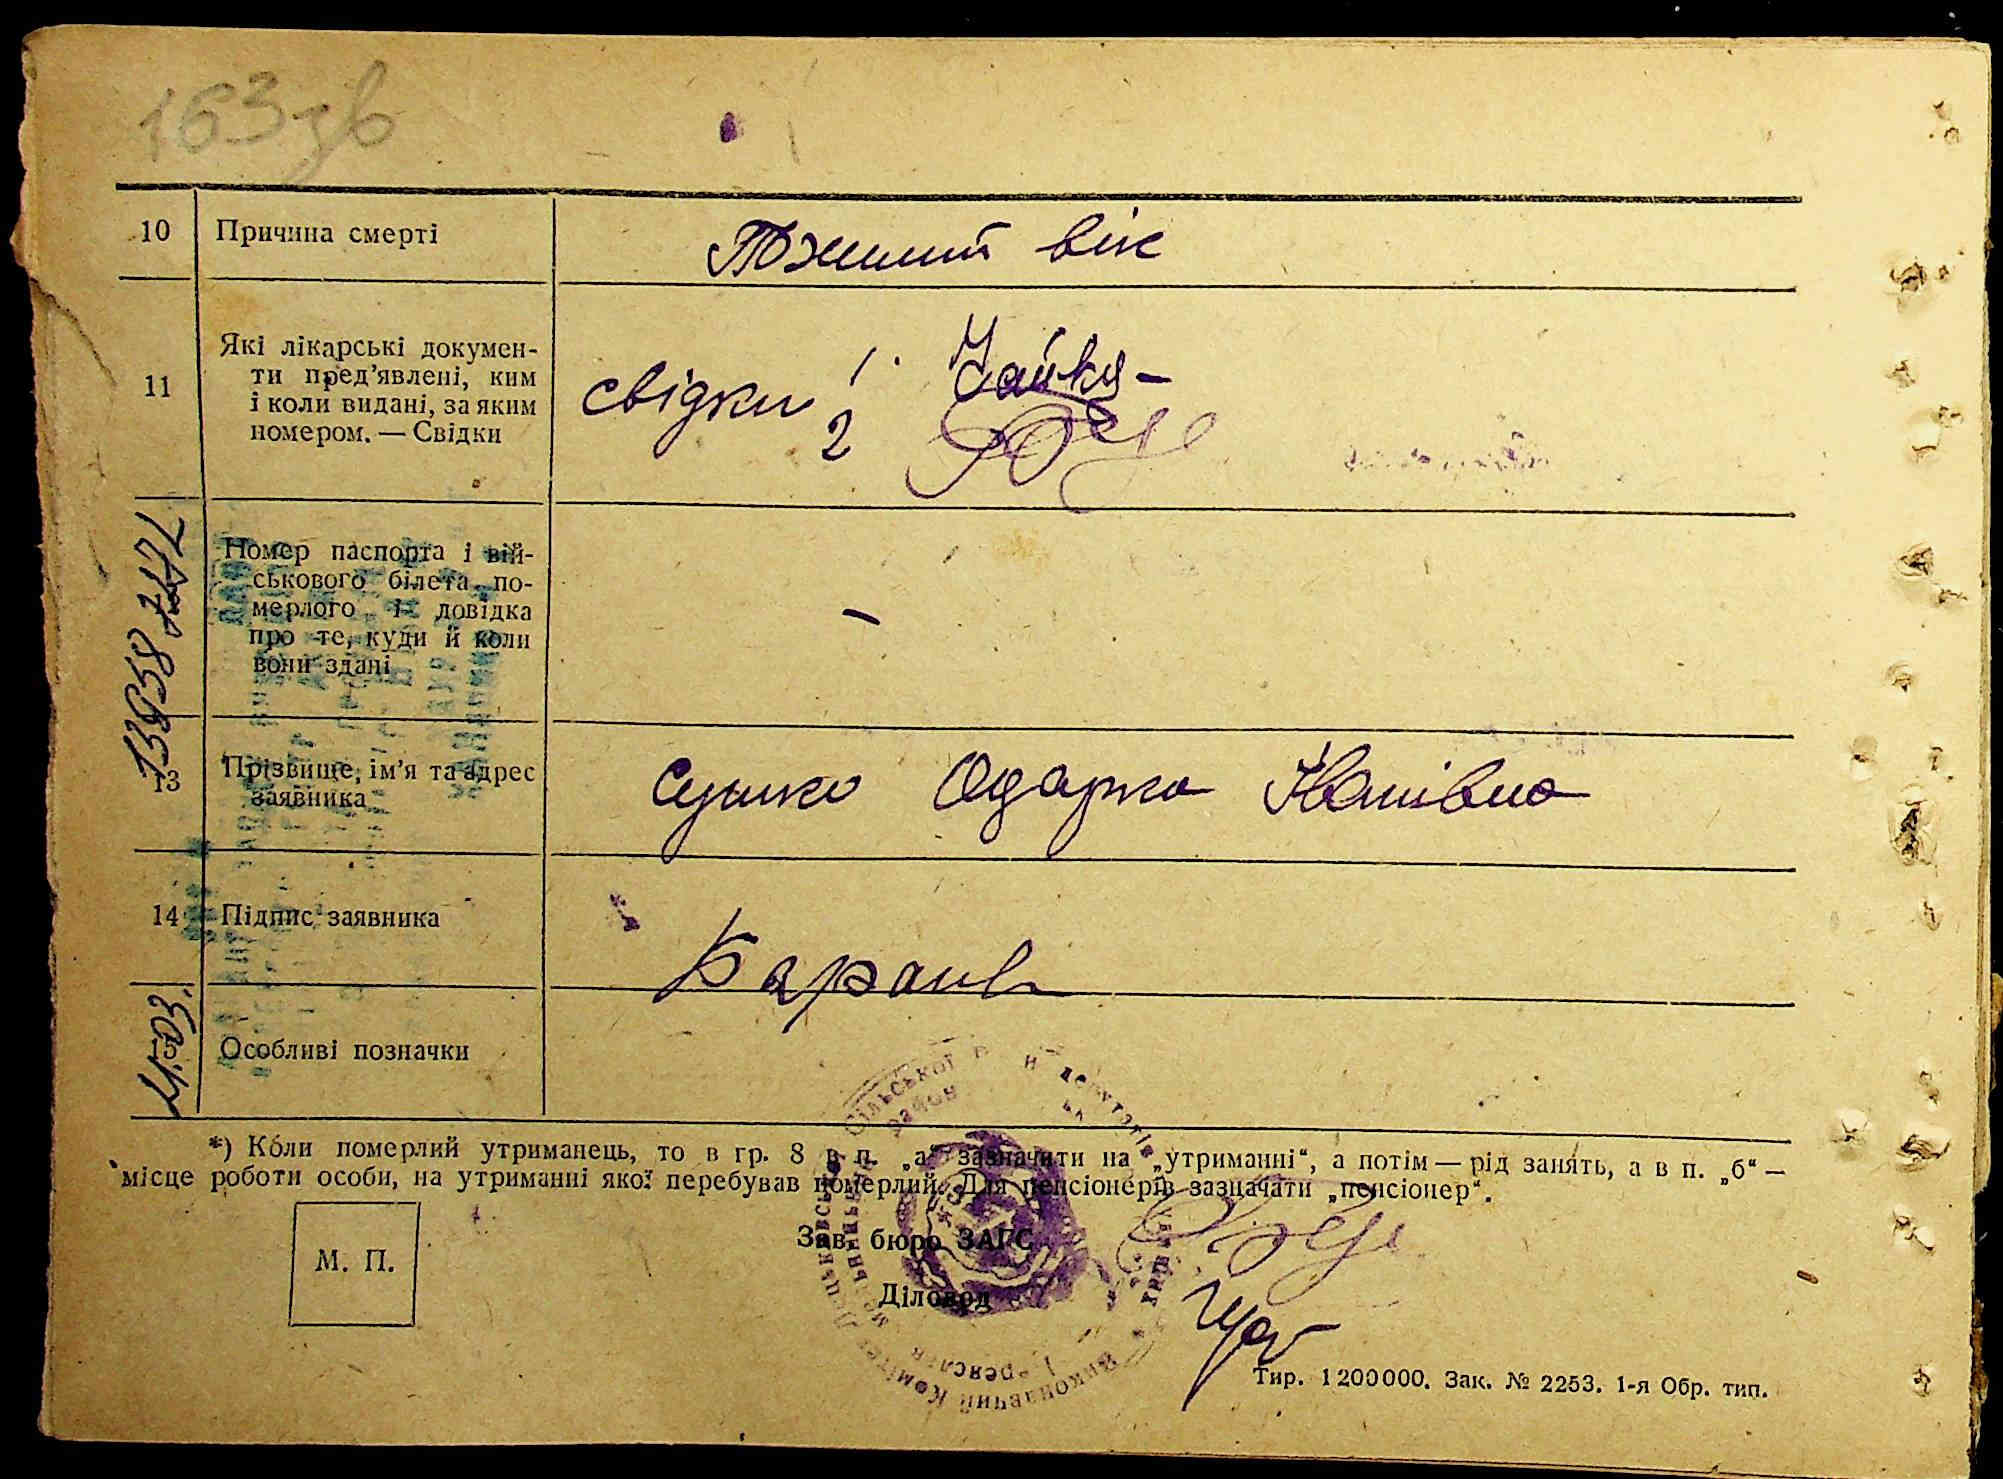 163 зв
10 Причина смерті
Тжилий вік
11
Які лікарські докумен-
ти пред'явлені, ким
і коли видані, за яким
номером. — Свідки
свідки 1. Чайка
2
Номер паспорта і вій-
ськового білета по-
мерлого і довідка
про те, куди й коли
вони здані
-
13
Прізвище, ім'я та адрес
заявника
Сушко Одарка Іванівна
14 Підпис заявника
Особливі позначки
*) Коли померлий утриманець, то в гр. 8 в п. „а" зазначити на „утриманні", а потім — рід занять, а в п. „б" —
місце роботи особи, на утриманні якої перебував померлий. Для пенсіонерів зазначати „пенсіонер".
М. П.
Зав. бюро ЗАГС
Діловод
Тир. 1200000. Зак. № 2253. 1-я Обр. тип.